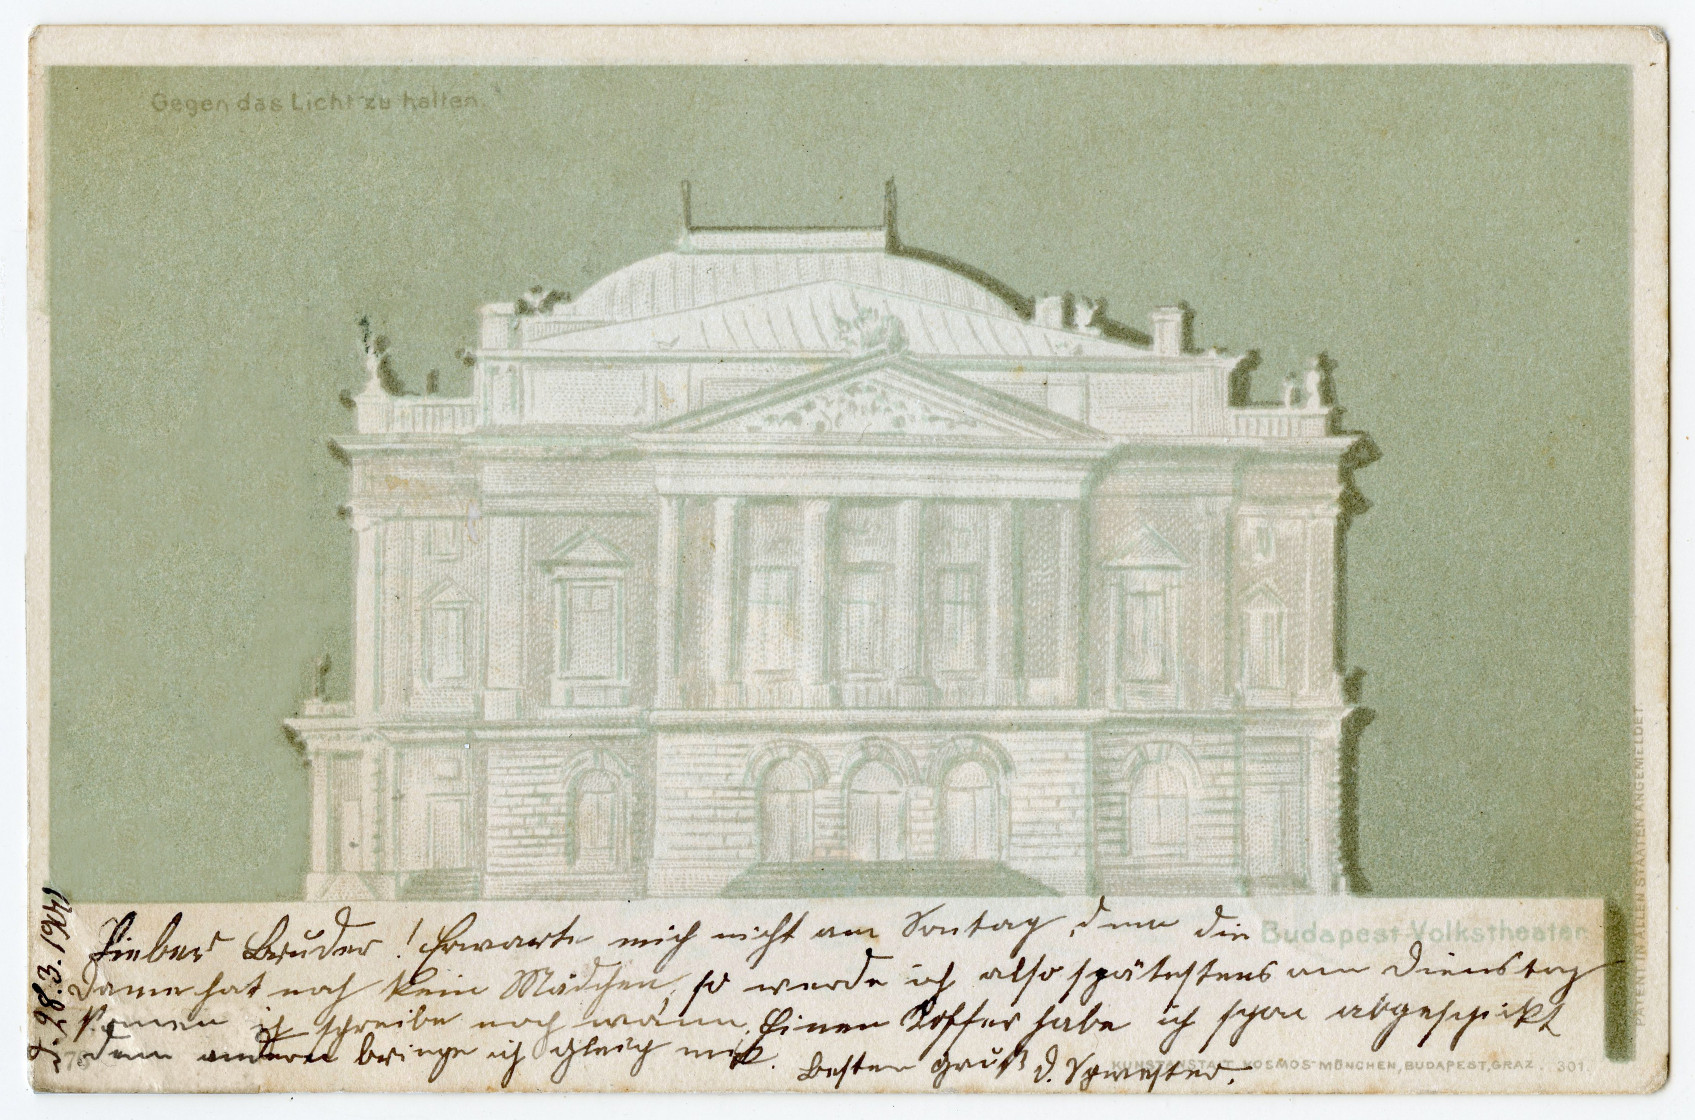 Gegen das Licht zu halten.
Lieber Bruder! Erwarte mich nicht am Sontag, denn die
Budapest-Volkstheater
Dame hat noch kein Mädchen, so werde ich also spätestens am Dienstag
komen ich schreibe noch wann. Einen Koffer habe ich schon abgeschickt
den anderen bringe ich gleich mit. Besten Gruß d. Schwester.
KUNSTANSTALT KOSMOS MÜNCHEN, BUDAPEST, GRAZ. 301.
28.3.1900
PATENT IN ALLEN STAATEN ANGEMELDET.